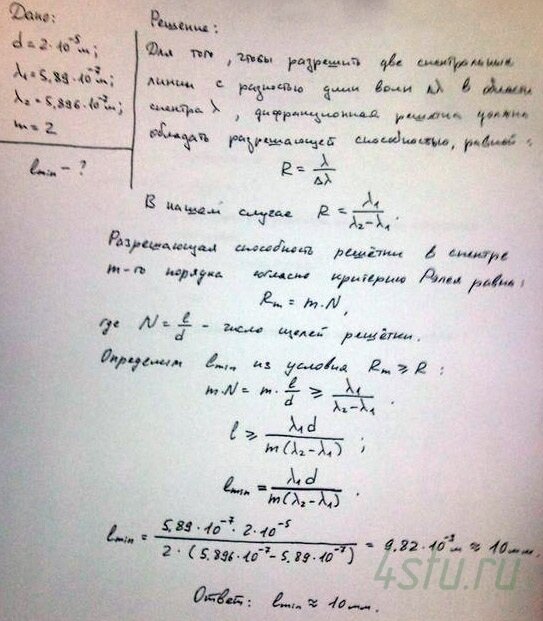 Дано:
d = 2·10⁻⁵ м;
λ₁ = 5,89·10⁻⁷ м;
λ₂ = 5,896·10⁻⁷ м;
m = 2
l_min - ?
Решение:
Для того, чтобы разрешить две спектральные
линии с разностью длин волн Δλ в области
спектра λ, дифракционная решётка должна
обладать разрешающей способностью, равной:
R = λ/Δλ
В нашем случае R = λ₁/(λ₂-λ₁).
Разрешающая способность решётки в спектре
m-го порядка согласно критерию Рэлея равна:
R_m = m·N,
где N = l/d - число щелей решётки.
Определим l_min из условия R_m ≥ R:
m·N = m·l/d ≥ λ₁/(λ₂-λ₁).
l ≥ λ₁d/(m(λ₂-λ₁));
l_min = λ₁d/(m(λ₂-λ₁)).
l_min = (5,89·10⁻⁷·2·10⁻⁵)/(2·(5,896·10⁻⁷-5,89·10⁻⁷)) = 9,82·10⁻³ м ≈ 10 мм.
4stu.ru
Ответ: l_min ≈ 10 мм.